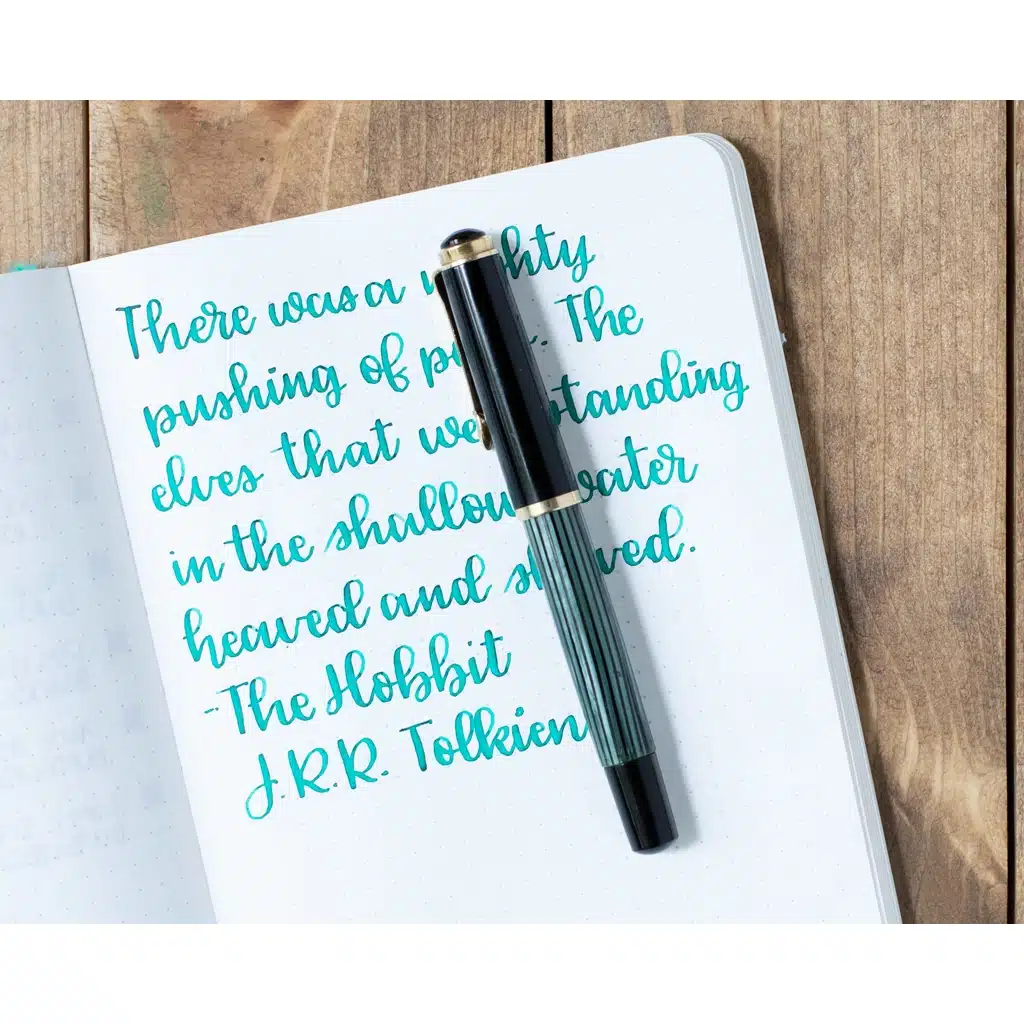 There was a mighty
pushing of The
elves that standing
in the shallow water
heaved and shoved.
-The Hobbit
J.R.R. Tolkien